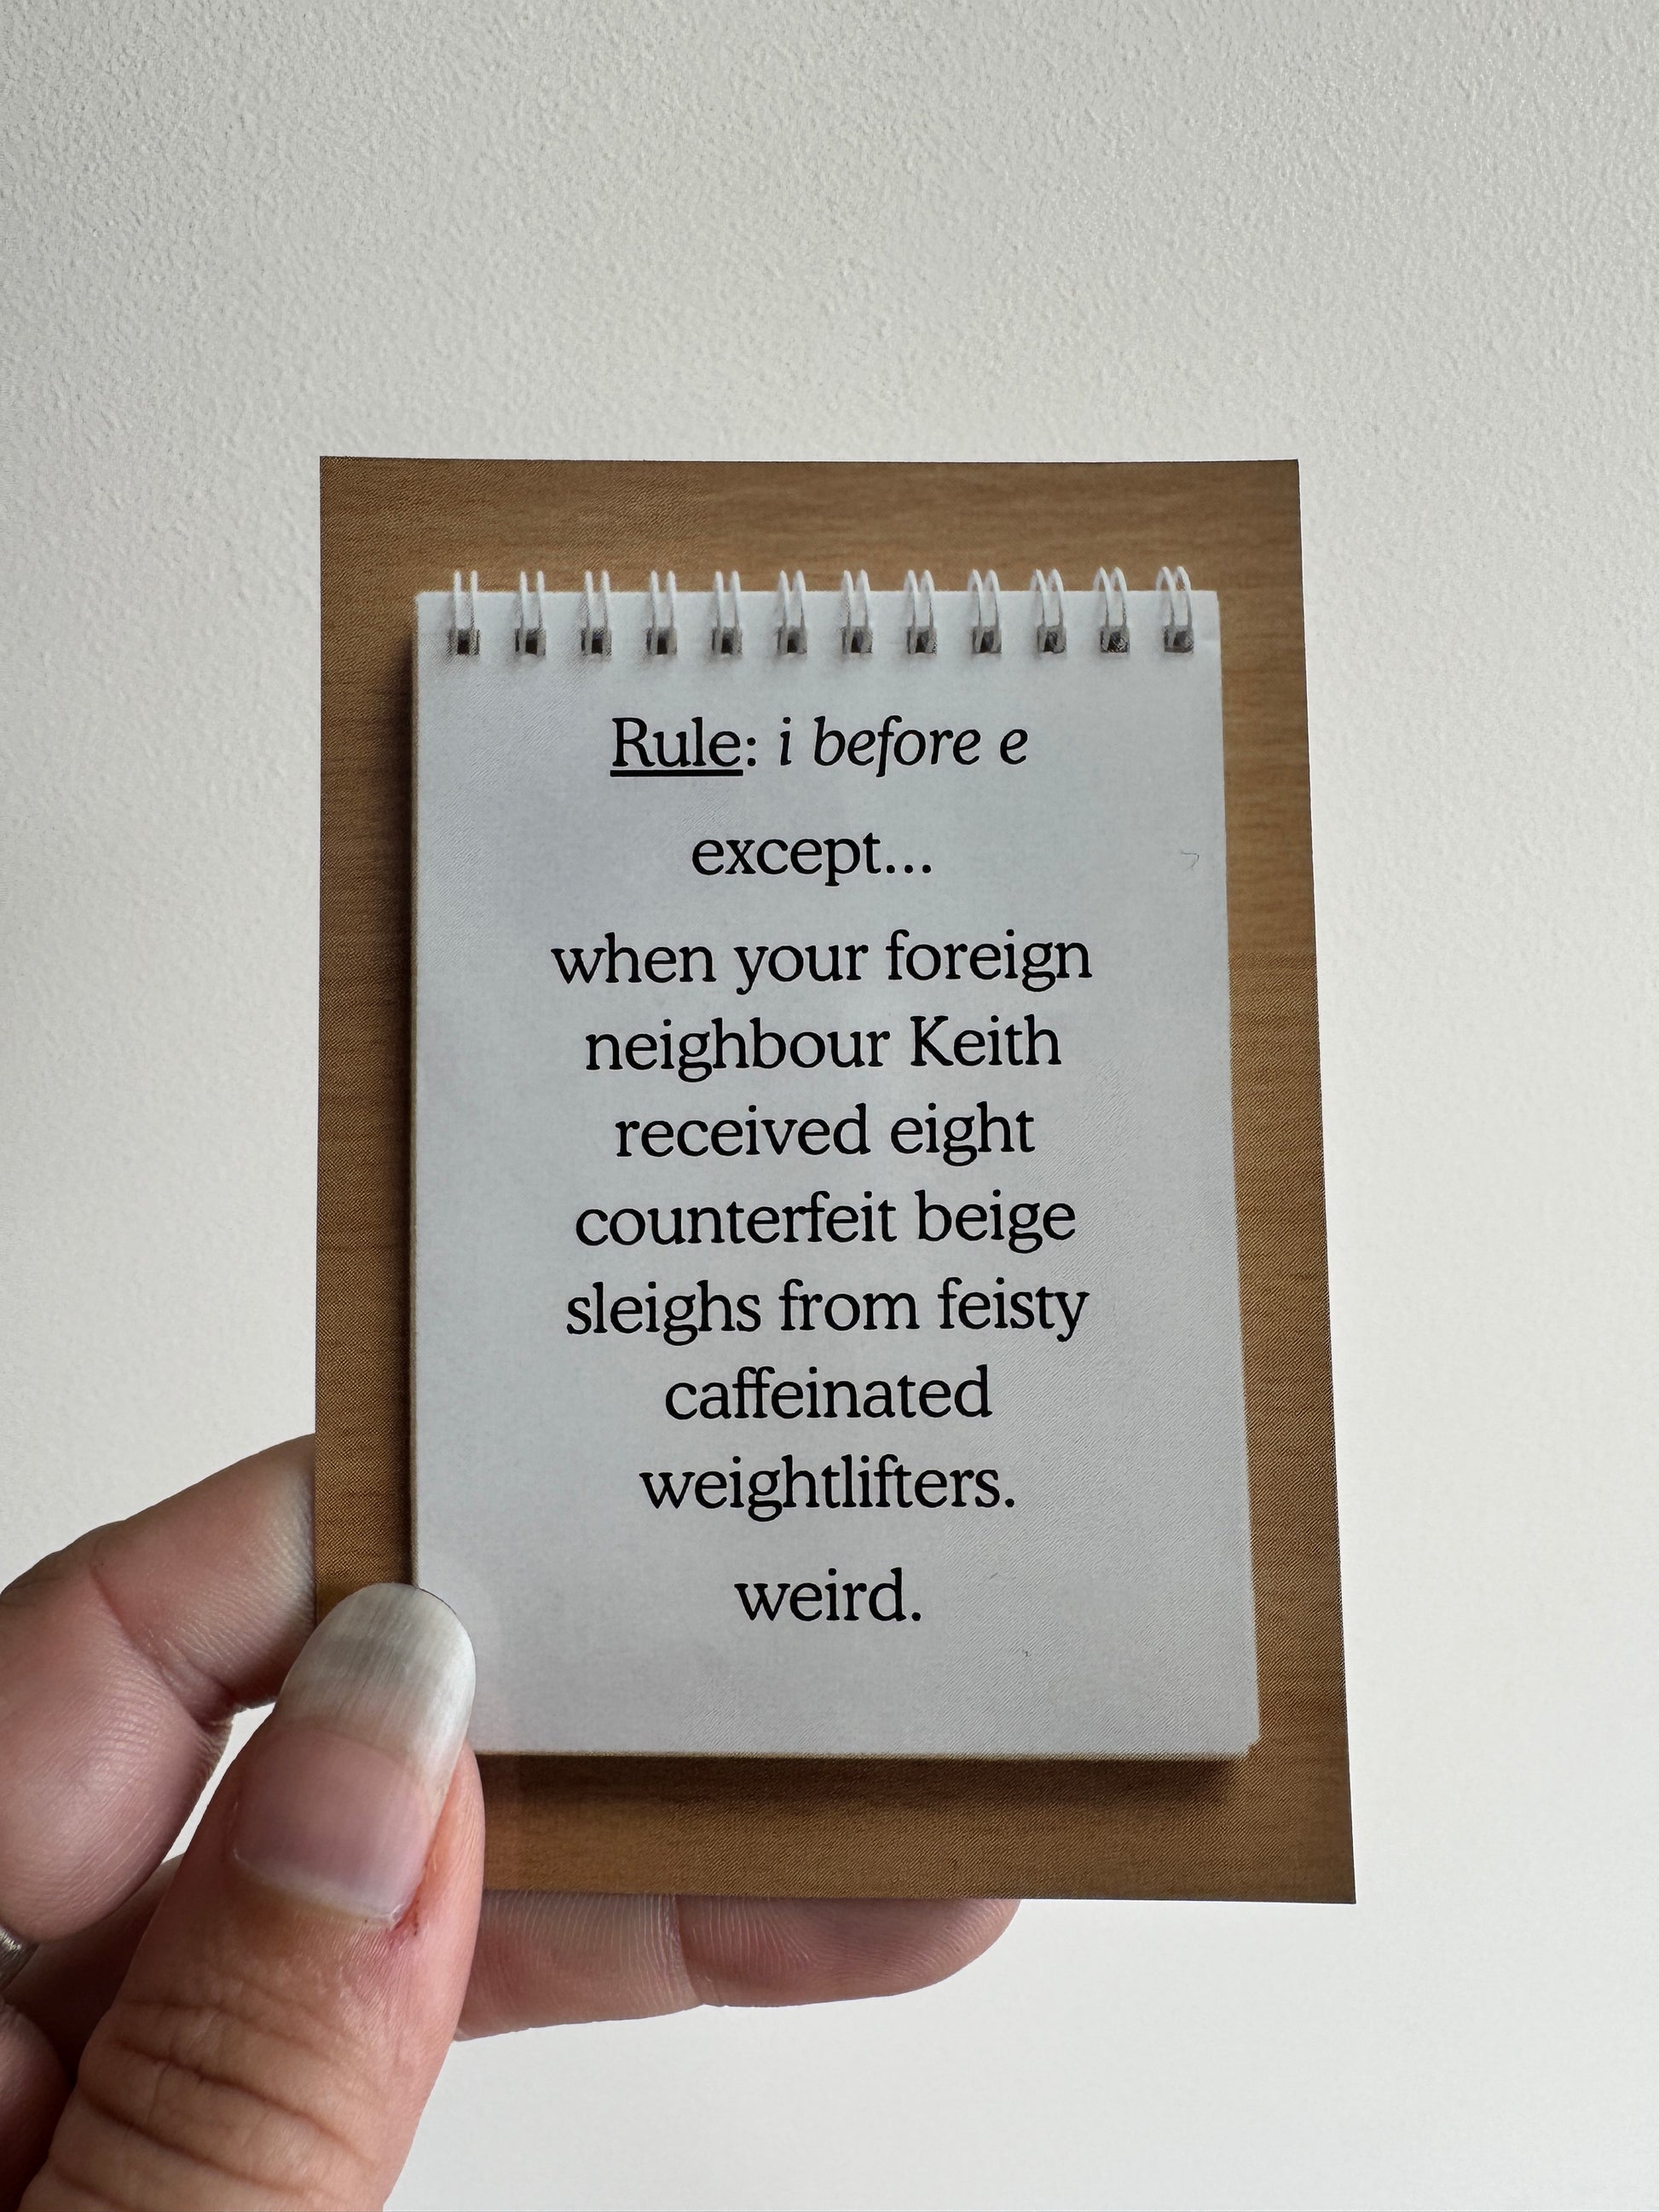 Rule: i before e
except...
when your foreign
neighbour Keith
received eight
counterfeit beige
sleighs from feisty
caffeinated
weightlifters.
weird.